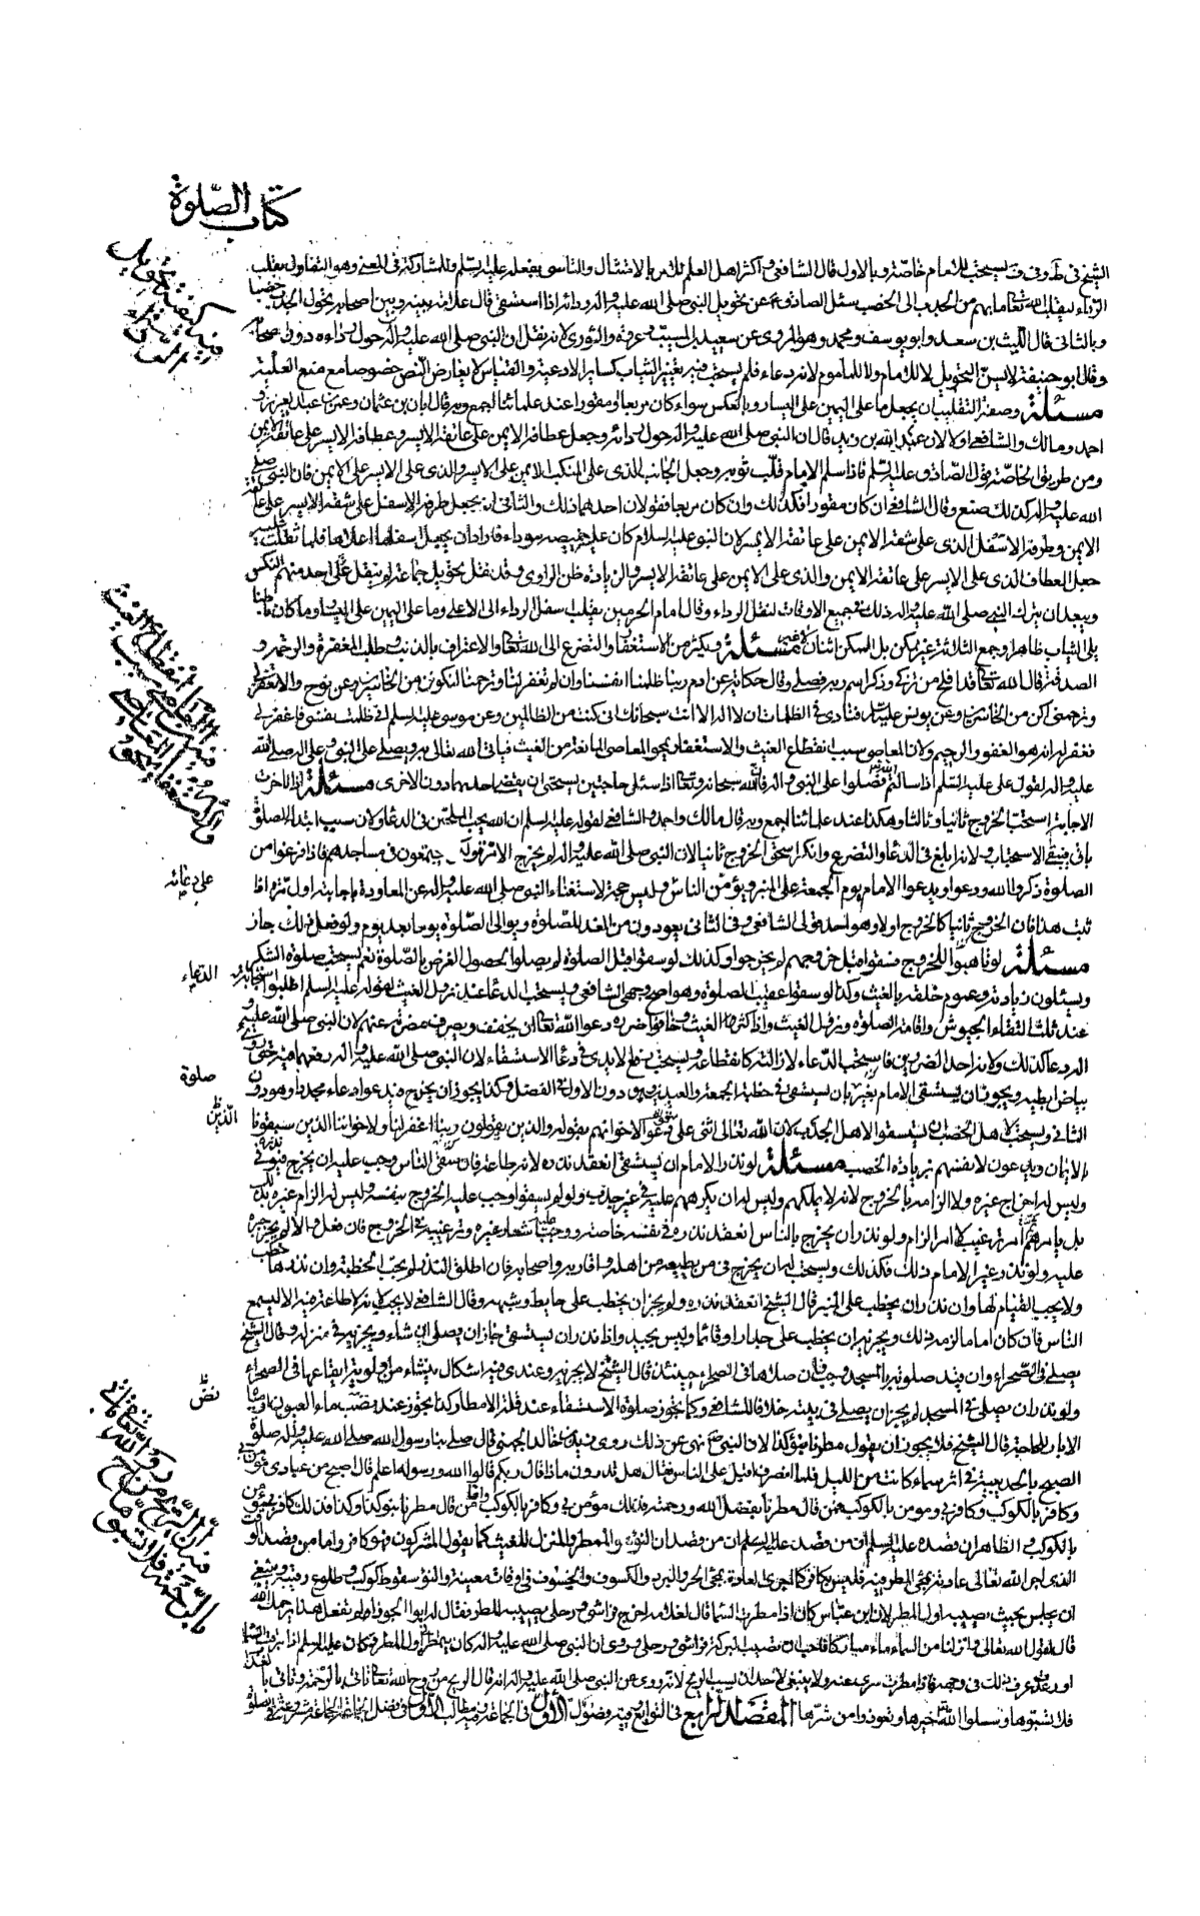 كتاب الصلوة
الشيخ في ط وفي ف يستحب للامام خاصة وبالاول قال الشافعي واكثر اهل العلم للامر بالامتثال والتاسي بفعله عليه السلم وللمشاركة في المعنى وهو التفاول بقلب
الرداء ليقلب الله تعالى ما بهم من الجدب الى الخصب سئل الصادق عن تحويل النبي صلى الله عليه واله رداءه اذا استسقى قال علامة بينه وبين اصحابه يحول الجدب خصبا
وبالثاني قال الليث بن سعد وابو يوسف ومحمد وهو المروي عن سعيد بن المسيب وعروة والثوري لانه نقل ان النبي صلى الله عليه واله حول رداءه دون اصحابه
وقال ابو حنيفة لا يسن التحويل لا للامام ولا للمأموم لانه دعاء فلم يستحب فيه تغيير الثياب كساير الادعية والقياس لا يعارض النص خصوصا مع منع العلية
مسئلة وصفة التقليب ان يجعل ما على اليمين على اليسار وبالعكس سواء كان مربعا او مقورا عند علمائنا اجمع وبه قال ابان بن عثمان وعمر بن عبد العزيز و
احمد ومالك والشافعي اولا لان عبد الله بن زيد قال ان النبي صلى الله عليه واله حول رداءه وجعل عطافه الايمن على عاتقه الايسر وعطافه الايسر على عاتقه الايمن
ومن طريق الخاصة قول الصادق عليه السلم فاذا سلم الامام قلب ثوبه وجعل الجانب الذي على المنكب الايمن على الايسر والذي على الايسر على الايمن فان النبي صلى
الله عليه واله كذلك صنع وقال الشافعي ان كان مقورا فكذلك وان كان مربعا فقولان احدهما ذلك والثاني ان يجعل طرفه الاسفل على شقه الايسر على عاتقه
الايمن وطرفه الاسفل الذي على شقه الايمن على عاتقه الايسر لان النبي عليه السلام كان عليه خميصة سوداء فاراد ان يجعل اسفلها اعلاها فلما ثقلت عليه
جعل العطاف الذي على الايسر على عاتقه الايمن والذي على الايمن على عاتقه الايسر والزيادة ظن الراوي وقد نقل تحويل جماعة لم ينقل على احد منهم النكس
ويبعد ان يترك النبي صلى الله عليه واله ذلك في جميع الاوقات لنقل الرداء وقال امام الحرمين يقلب اسفل الرداء الى الاعلى وما على اليمين على اليسار وما كان باطنا
يلي الثياب ظاهرا وجمع الثلاثة غير ممكن بل الممكن اثنان لا غير مسئلة ويكثر من الاستغفار والتضرع الى الله تعالى والاعتراف بالذنب وطلب المغفرة والرحمة و
الصدقة قال الله تعالى قد افلح من تزكى وذكر اسم ربه فصلى وقال حكاية عن ادم ربنا ظلمنا انفسنا وان لم تغفر لنا وترحمنا لنكونن من الخاسرين وعن نوح والا تغفر لي
وترحمني اكن من الخاسرين وعن يونس عليه السلم فنادى في الظلمات ان لا اله الا انت سبحانك اني كنت من الظالمين وعن موسى عليه السلم اني ظلمت نفسي فاغفر لي
فغفر له انه هو الغفور الرحيم ولان المعاصي سبب انقطاع الغيث والاستغفار يمحو المعاصي المانعة من الغيث فياتي الله تعالى به ويصلي على النبي وعلى اله صلى الله
عليه واله لقول علي عليه السلم اذا سالتم الله فصلوا على النبي واله فالله سبحانه وتعالى اذا سئل حاجتين يستحيى ان يقضي احديهما دون الاخرى مسئلة اذا تاخرت
الاجابة استحب الخروج ثانيا وثالثا وهكذا عند علمائنا اجمع وبه قال مالك واحمد والشافعي لقوله عليه السلم ان الله يحب الملحين في الدعاء ولان سبب ابتداء الصلوة
باق فيبقى الاستحباب ولانه ابلغ في الدعاء والتضرع وانكر اسحق الخروج ثانيا لان النبي صلى الله عليه واله لم يخرج الا مرة ولكن يجتمعون في مساجدهم فاذا فرغوا من
الصلوة ذكروا الله ودعوا ويدعوا الامام يوم الجمعة على المنبر ويؤمن الناس وليس حجة لاستغناء النبي صلى الله عليه واله عن المعاودة باجابته اول مرة اذا
ثبت هذا فان الخروج ثانيا كالخروج اولا وهو احد قولي الشافعي وفي الثاني يعودون من الغد للصلوة ويوالي الصلوة يوما بعد يوم ولو فعل ذلك جاز
مسئلة لو تاهبوا للخروج فسقوا قبل خروجهم لم يخرجوا وكذلك لو سقوا قبل الصلوة لم يصلوا لحصول الغرض بالصلوة نعم يستحب صلوة الشكر
ويسئلون زيادته وعموم خلقه بالغيث وكذا لو سقوا عقيب الصلوة وهو اصح وجهي الشافعي ويستحب الدعاء عند نزول الغيث لقوله عليه السلم اطلبوا استجابة الدعاء
عند ثلث التقاء الجيوش واقامة الصلوة ونزول الغيث واذا كثر الغيث وخافوا ضرره دعوا الله تعالى ان يخفف ويصرف مضرته عنهم لان النبي صلى الله عليه و
اله دعا كذلك ولانه احد الضررين فاستحب الدعاء لازالته كانقطاعه ويستحب رفع الايدي في دعاء الاستسقاء لان النبي صلى الله عليه واله رفعهما فيه حتى رؤي
بياض ابطيه ويجوز ان يستسقى الامام بغير صلوة بان يستسقى في خطبة الجمعة والعيدين وهو دون الاولى في الفضل وكذا يجوز ان يخرج فيدعوا دعاء مجردا وهو دون
الثاني ويستحب لاهل الخصب ان يستسقوا لاهل الجدب لان الله تعالى اثنى على من دعوا لاخوانهم بقوله والذين يقولون ربنا اغفر لنا ولاخواننا الذين سبقونا
بالايمان ويدعون لانفسهم بزيادة الخصب مسئلة لو نذر الامام ان يستسقى انعقد نذره لانه طاعة فان سقى الناس وجب عليه ان يخرج فيوفي نذره
وليس له اخراج غيره ولا الزامه بالخروج لانه لا يملكهم وليس له ان يكرههم عليه في غير جدب ولو لم يسقوا وجب عليه الخروج بنفسه وليس له الزام غيره بذلك
بل يامرهم امر ترغيب لا امر الزام ولو نذر ان يخرج بالناس انعقد نذره في نفسه خاصة ووجب عليه اشعار غيره وترغيبه في الخروج فان فعل والا لم يجز جبره
عليه ولو نذر غير الامام ذلك فكذلك ويستحب له ان يخرج في من يطيعه من اهله واقاربه واصحابه فان اطلق النذر لم يجب الخطبة وان نذرها خطب
ولا يجب القيام لها وان نذر ان يخطب على المنبر قال الشيخ انعقد نذره ولم يجز ان يخطب على حايط وشبهه وقال الشافعي لا يجب لانه لا طاعة فيه الا ليسمع
الناس فان كان اماما لزمه ذلك ويجزيه ان يخطب على جدار او قائما وليس بجيد واذا نذر ان يستسقى جاز ان يصلي اين شاء ويجزيه في منزله وقال الشيخ
يصلي في الصحراء وان قيد صلوته بالمسجد وجب فان صلاها في الصحراء حينئذ قال الشيخ لا يجزيه وعندي فيه اشكال ينشاء من اولوية ايقاعها في الصحراء
ولو نذر ان يصلي في المسجد لم يجز ان يصلي في بيته خلافا للشافعي وكما يجوز صلوة الاستسقاء عند قلة الامطار كذا يجوز عند نضب ماء العيون او مياه
الابار للحاجة قال الشيخ فلا يجوز ان يقول مطرنا بنوء كذا لان النبي ص نهى عن ذلك روى زيد بن خالد الجهني قال صلى بنا رسول الله صلى الله عليه واله صلوة
الصبح بالحديبية في اثر سماء كانت من الليل فلما انصرف اقبل على الناس فقال هل تدرون ماذا قال ربكم قالوا الله ورسوله اعلم قال اصبح من عبادي مؤمن بي
وكافر بالكوكب وكافر بي ومومن بالكوكب فمن قال مطرنا بفضل الله ورحمته فذلك مؤمن بي وكافر بالكوكب واما من قال مطرنا بنوء كذا وكذا فذلك كافر بي مؤمن
بالكوكب والظاهر ان قصده عليه السلم ان من قصد ان النوء والمطر المنزل للغيث كما يقول المشركون فهو كافر واما من قصد الوقت
الذي اجرى الله تعالى عادته بمجئ المطر فيه فليس بكافر كما اجرى العادة بمجئ الحر والبرد والكسوف والخسوف في اوقات معينة والنوء سقوط كوكب وطلوع رقيبه وينبغي
ان يجلس بحيث يصيبه اول المطر لان ابن عباس كان اذا مطرت السماء قال لغلامه اخرج فراشي ورحلي يصيبه المطر فقال له ابو الجوزاء لم تفعل هذا يرحمك الله
قال لقول الله تعالى وانزلنا من السماء ماء مباركا فاحب ان تصيب البركة فراشي ورحلي وروى ان النبي صلى الله عليه واله كان يتمطر في اول المطر وكان عليه السلم اذا برقت السماء
او رعدت عرف ذلك في وجهه فاذا مطرت سرى عنه ولا ينبغي لاحد ان يسب الريح لانه روى عن النبي صلى الله عليه واله انه قال الريح من روح الله تعالى تاتي بالرحمة وتاتي بالعذاب
فلا تسبوها وسلوا الله خيرها وتعوذوا من شرها المقصد الرابع في التوابع وفيه فصول الاول في الجماعة وفيه مطالب الاول في فضل الجماعة
فيه كيفية تحويل
الرداء
على دعائه
الدعاء
صلوة
الذين
نض
فيه ان الريح من روح الله تعالى تاتي
بالرحمة فلا تسبوها